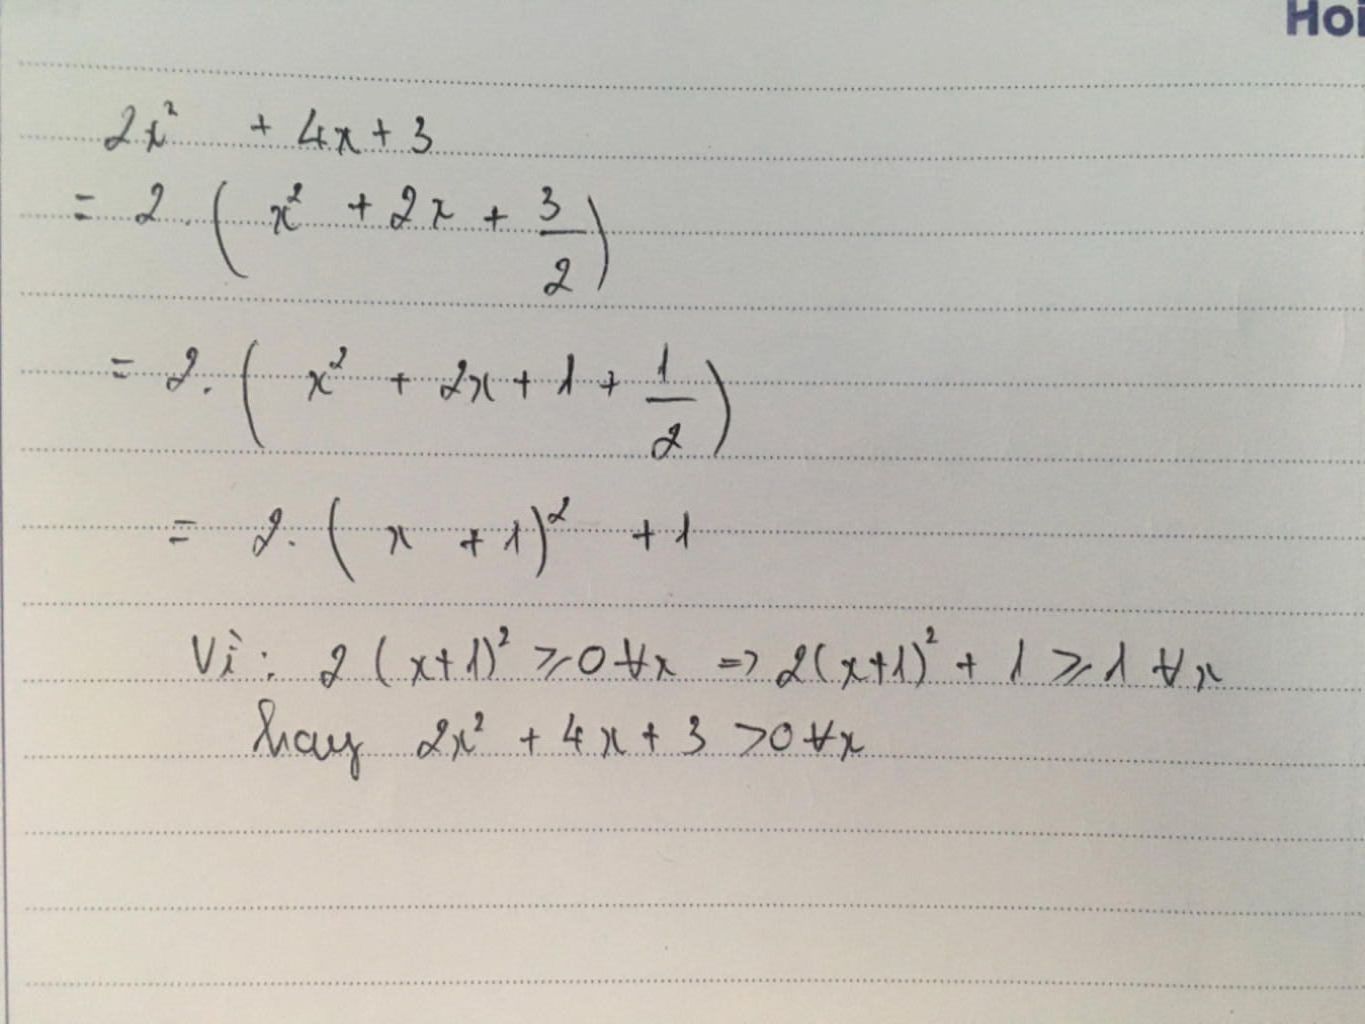 Hoi
2x² + 4x + 3
= 2. ( x² + 2x + 3/2 )
= 2. ( x² + 2x + 1 + 1/2 )
= 2. ( x + 1)² + 1
Vì: 2 (x+1)² ⩾ 0 ∀x => 2(x+1)² + 1 ⩾ 1 ∀x
hay 2x² + 4x + 3 > 0 ∀x